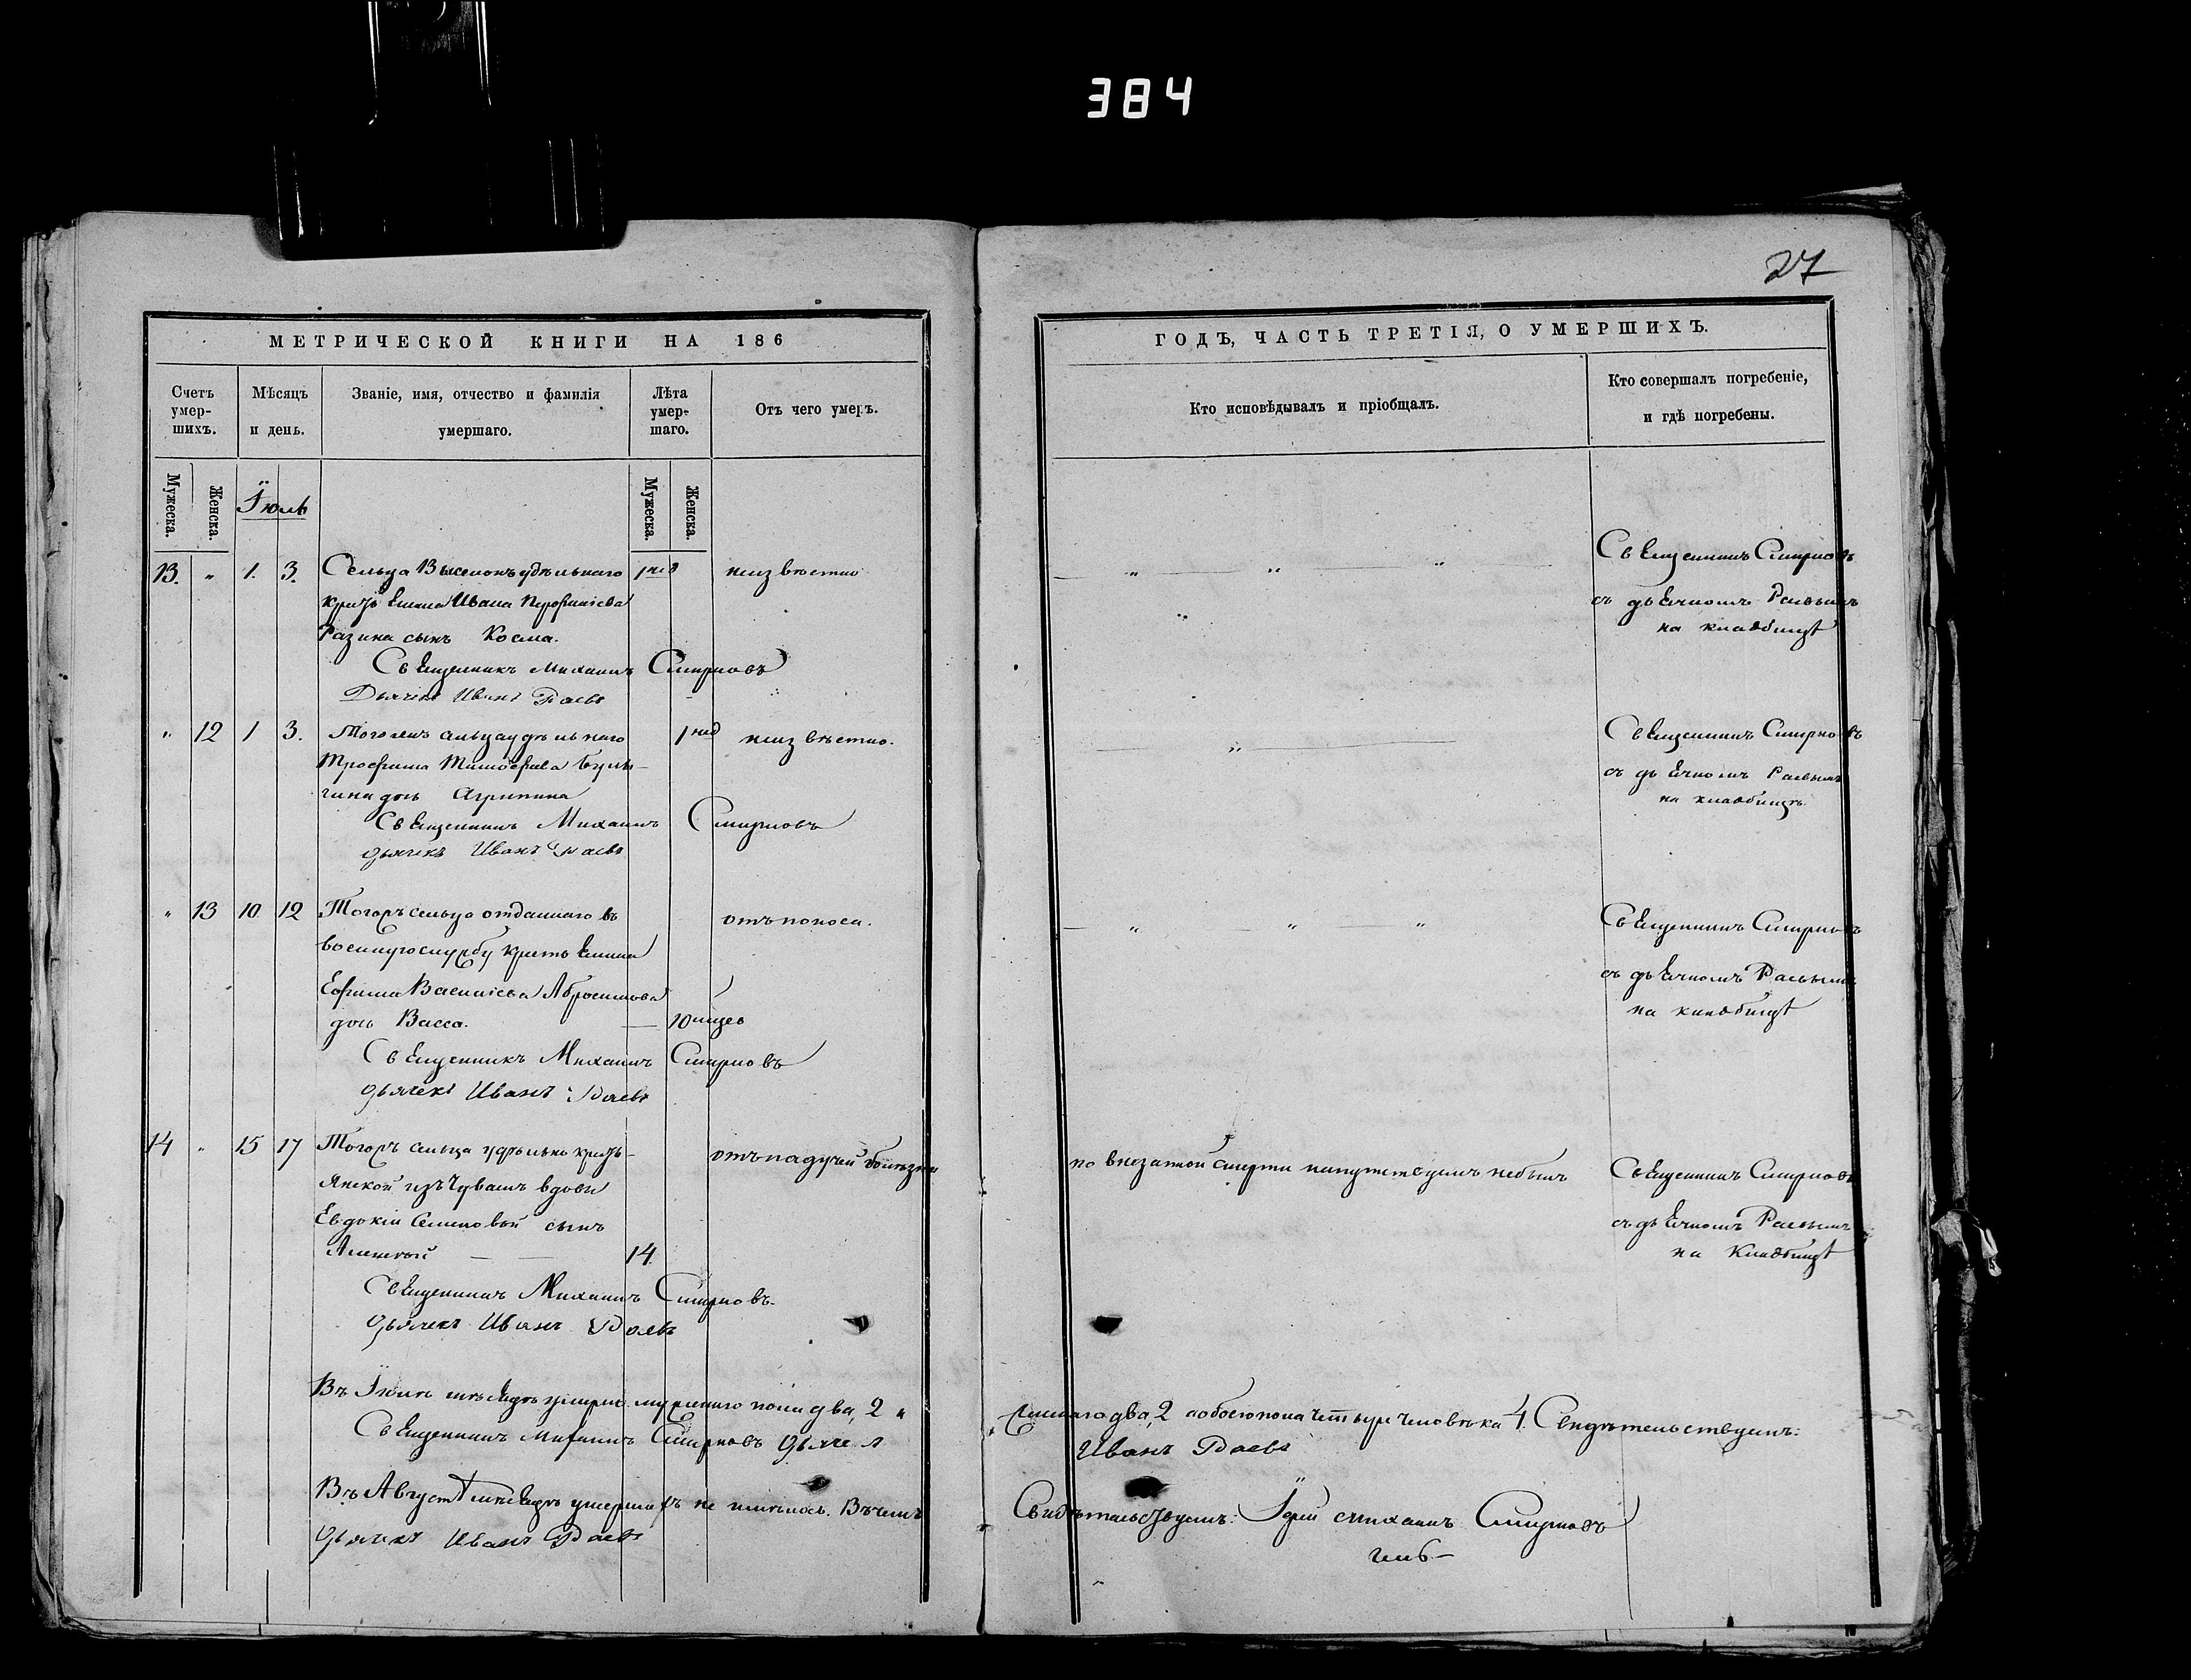 384
27
МЕТРИЧЕСКОЙ КНИГИ НА 186
Счетъ умер-шихъ.
Мѣсяцъ и день.
Званіе, имя, отчество и фамилія умершаго.
Лѣта умер-шаго.
Отъ чего умеръ.
Мужеска.
Женска.
Іюль
Мужеска.
Женска.
13. " 1. 3. Сельца удѣльнаго 1 нед неизвѣстно
Ивана
Разина сынъ Косма.
Священникъ Михаилъ Смирновъ
Дьячекъ Иванъ Раевъ
" 12 1 3. Тогожъ сельца удѣльнаго 1 нед неизвѣстно.
Трофима Тимофѣева Булы-
гина дочь Агрипина
Священникъ Михаилъ Смирновъ
дьячекъ Иванъ Раевъ
" 13 10 12 Тогожъ сельца отданнаго въ отъ поноса.
военную службу крестьянина
Ефима Васильева Абросимова
дочь Васса. 10 мѣсяц
Священникъ Михаилъ Смирновъ
дьячекъ Иванъ Раевъ
14 " 15 17 Тогожъ сельца удѣльно кресть- отъ падучей болѣзни
янской изъ Чувашъ вдовы
Евдокіи Семеновой сынъ
Алексѣй — — 14.
Священникъ Михаилъ Смирновъ.
дьячекъ Иванъ Раевъ
Въ Іюлѣ мѣсяцѣ умерло мужескаго пола два, 2 "
Священникъ Михаилъ Смирновъ дьячекъ
Въ Августѣ мѣсяцѣ умершихъ не имѣлось. Въ чемъ
дьячекъ Иванъ Раевъ
ГОДЪ, ЧАСТЬ ТРЕТІЯ, О УМЕРШИХЪ.
Кто исповѣдывалъ и пріобщалъ.
Кто совершалъ погребеніе, и гдѣ погребены.
— " — " — " — Священникъ Смирновъ
" съ дьячкомъ Раевымъ
на кладбищѣ
— " — Священникъ Смирновъ
съ дьячкомъ Раевымъ
на кладбищѣ.
— " — " — " Священникъ Смирновъ
съ дьячкомъ Раевымъ
на кладбищѣ
по внезапной смерти напутствуемъ небылъ Священникъ Смирновъ
съ дьячкомъ Раевымъ
на кладбищѣ
женскаго два, 2 а обоего пола четыре человѣка 4. Свидѣтельствуемъ:
Иванъ Раевъ
Свидѣтельствуемъ: Іерей Михаилъ Смирновъ